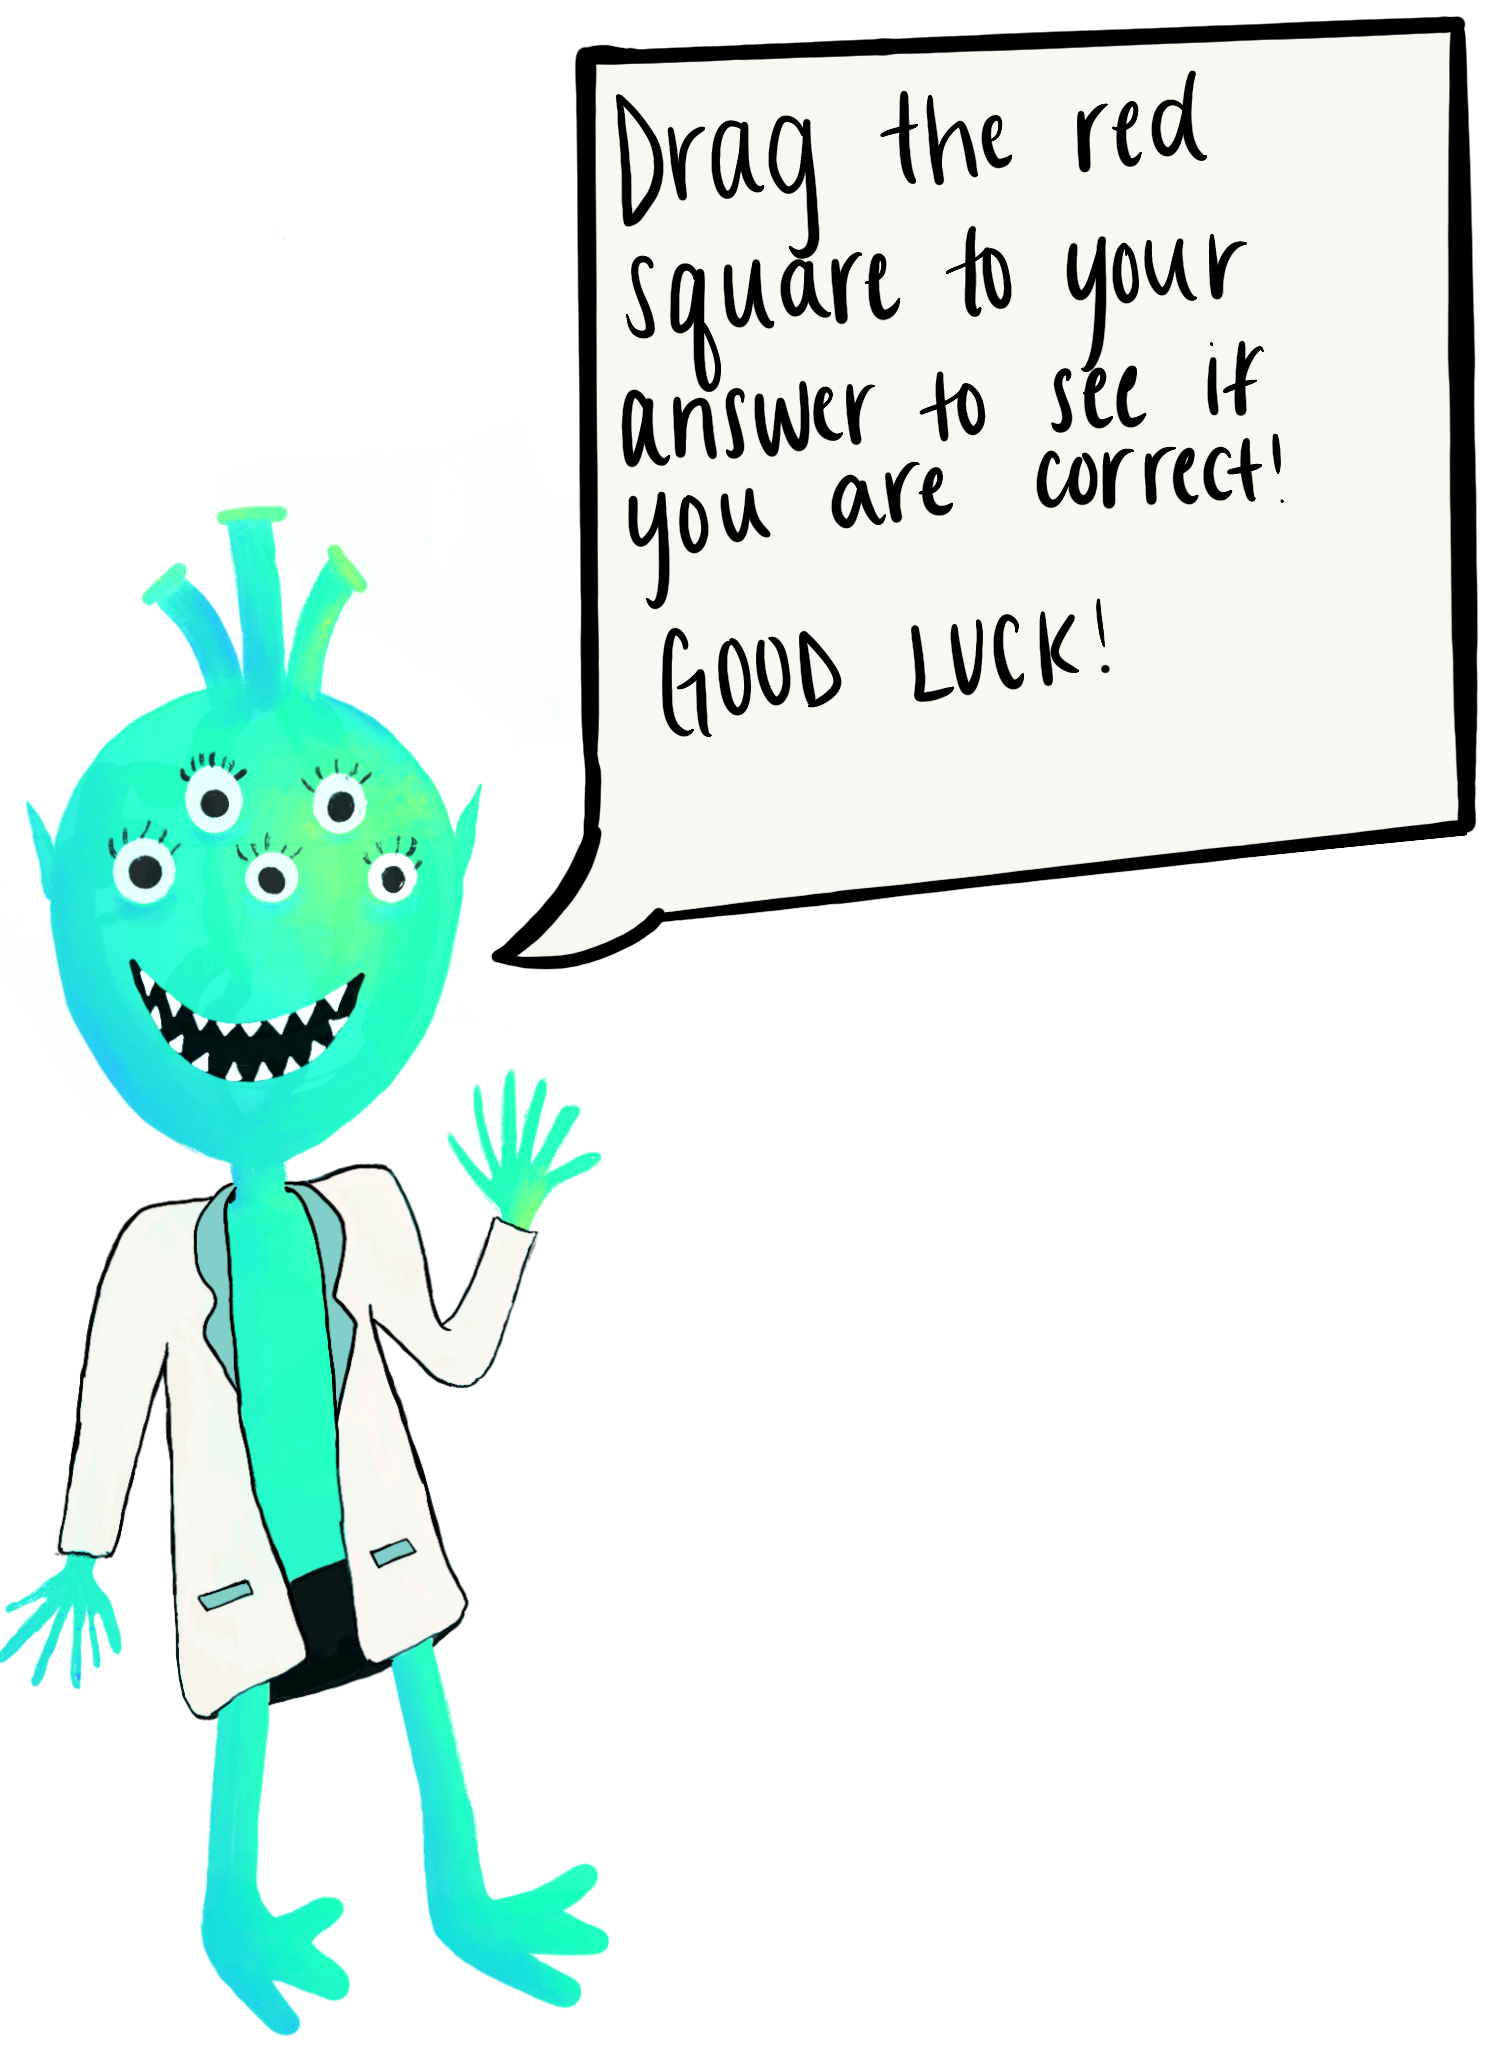 Drag the red
square to your
answer to see if
you are correct!
GOOD LUCK!